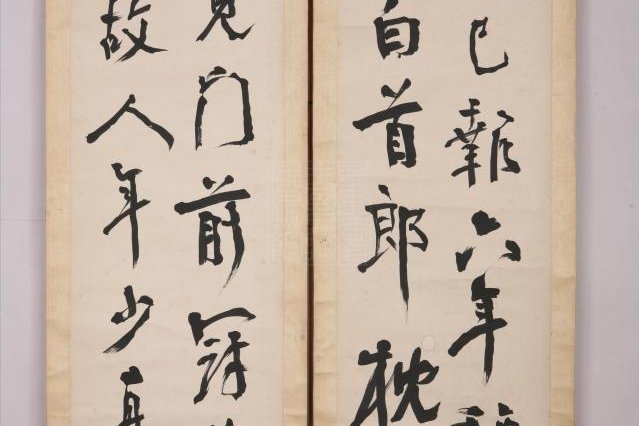 已報六年
白首郎枕
見門前冠
故人年少真